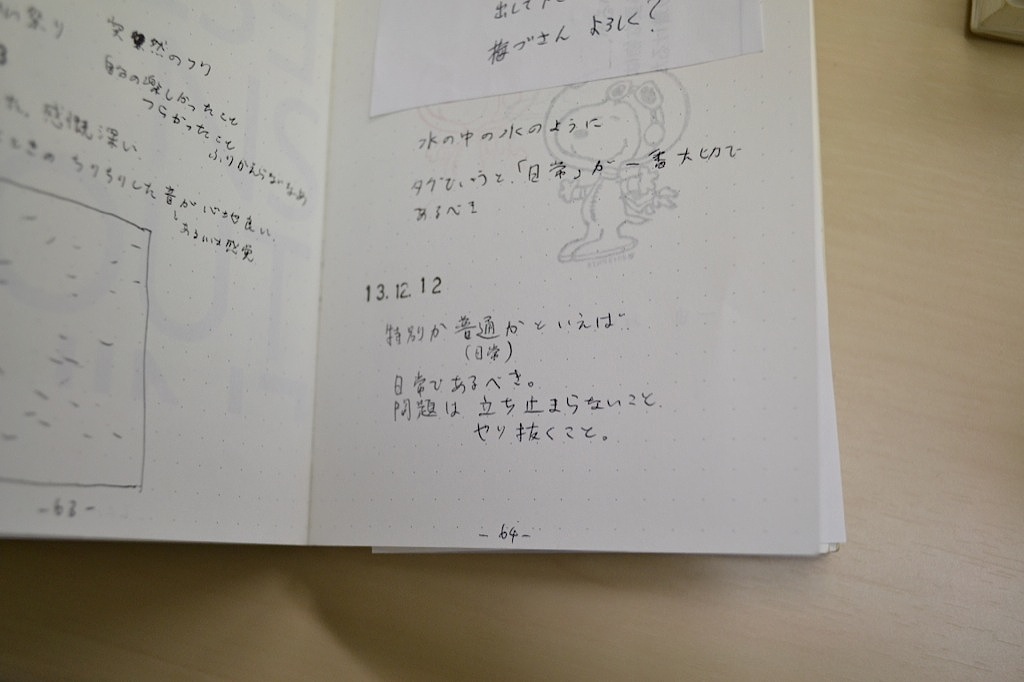 い祭り
突然のフリ
自分の楽しかったこと
つらかったこと
ふりかえらないなぁ
た。感慨深い.
ときの ちりちりした 音が心地良い.
あるいは感覚
-63-
出して
梅づさん よろしく?
水の中の水のように
タグでいうと、「日常」が一番大切で
あるべき
13.12.12
特別か 普通か といえば
(日常)
日常であるべき。
問題は 立ち止まらないこと.
やり抜くこと。
-64-